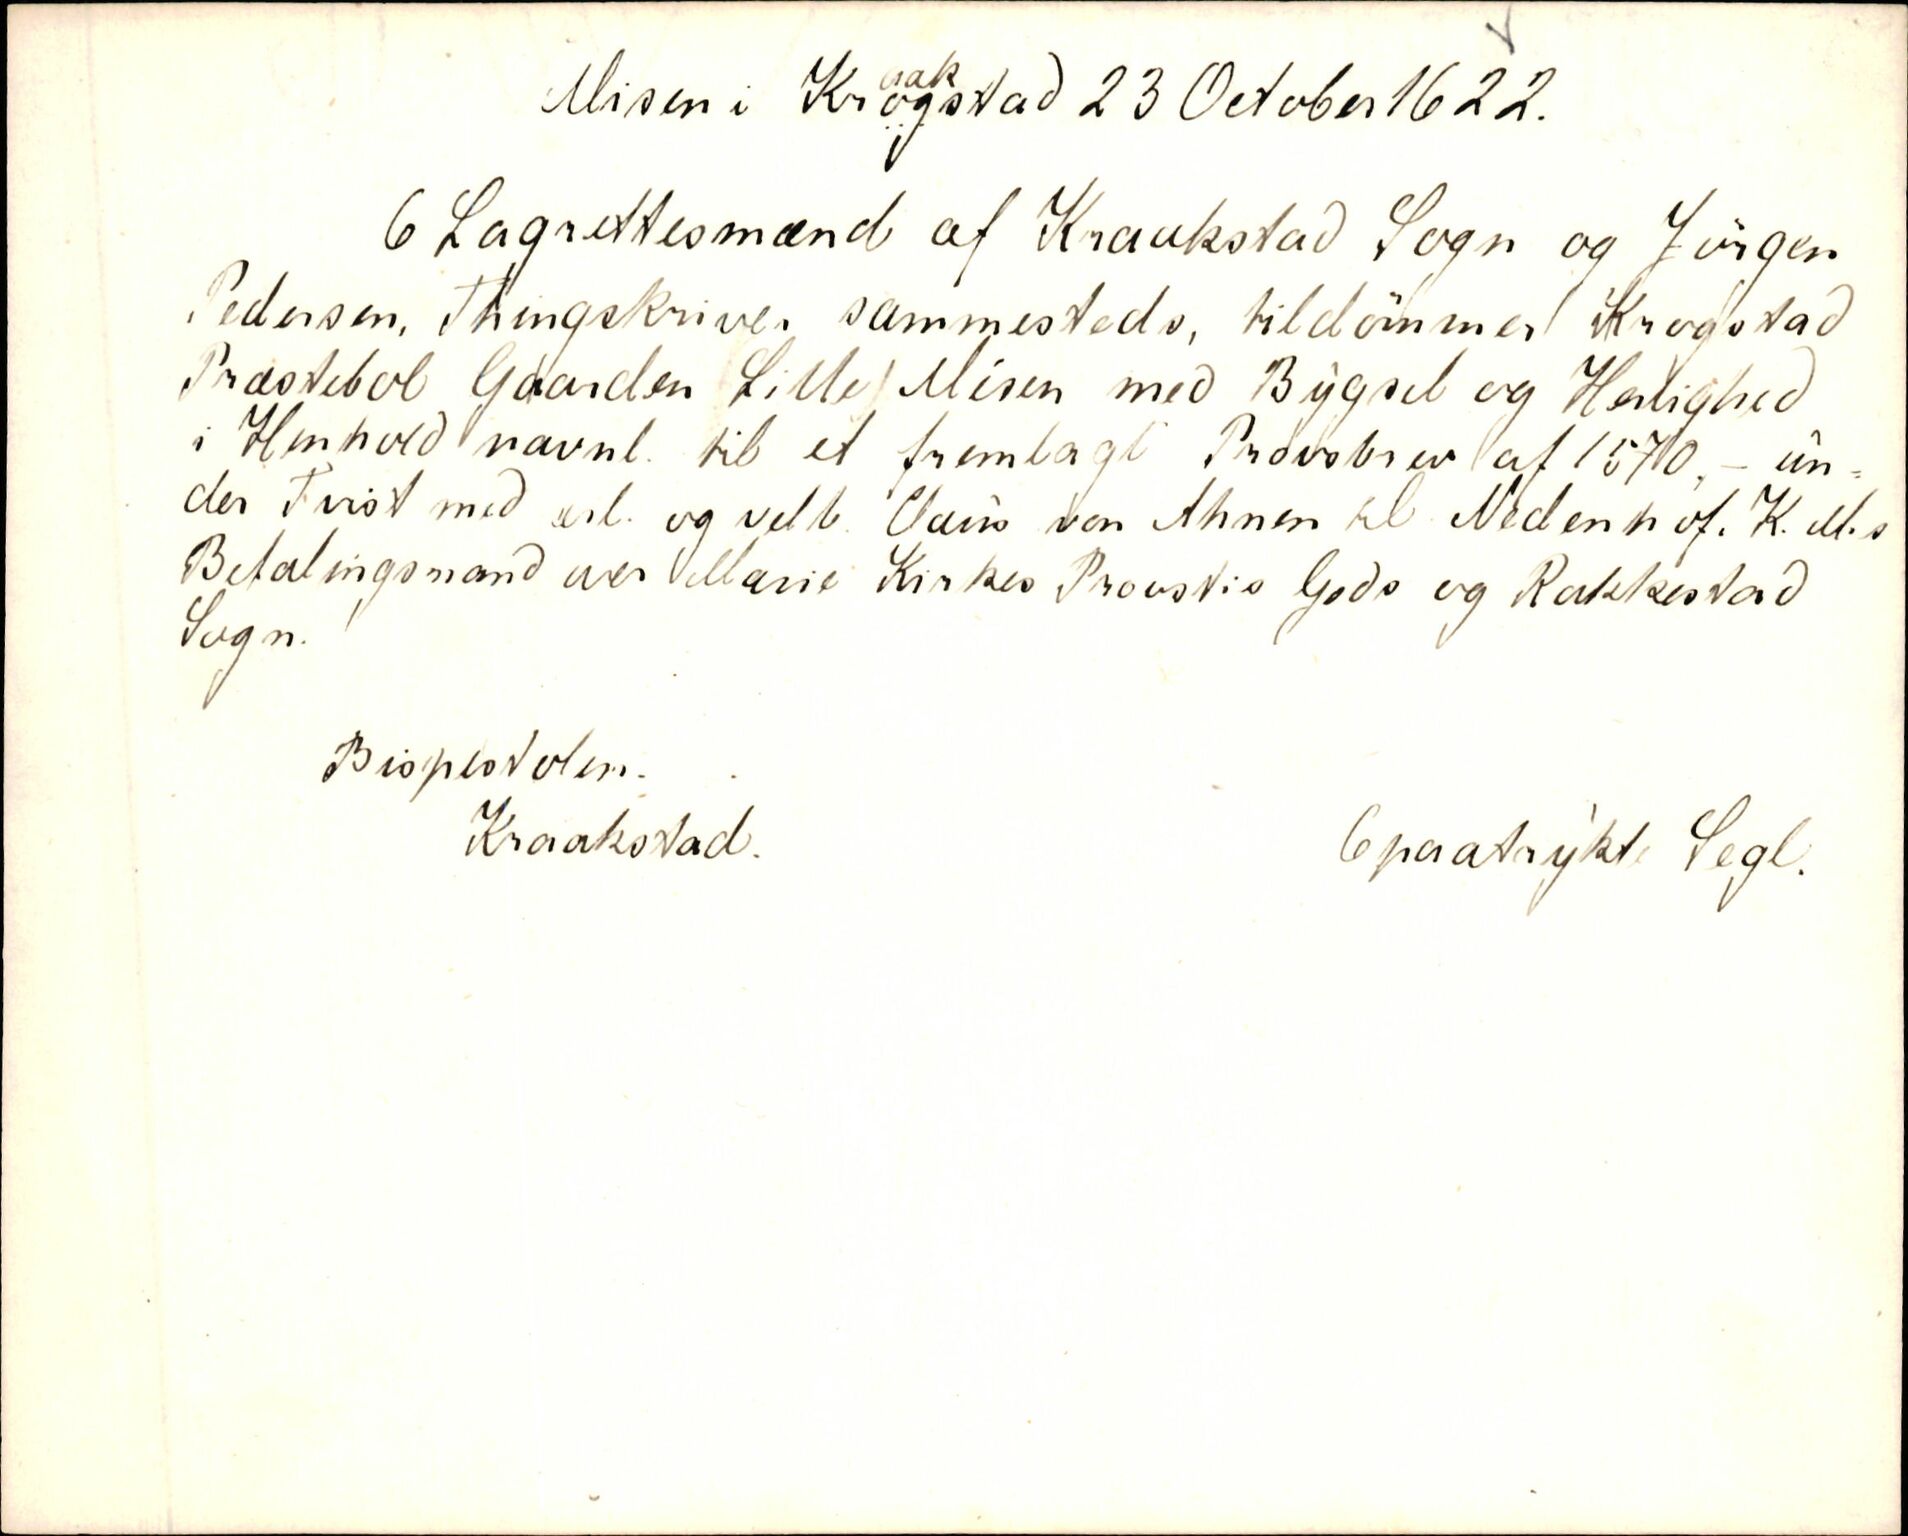 Misen i Krogstad 23 October 1622.
aak
6 Lagrettesmænd af Kraakstad Sogn og Jörgen
Pedersen, Thingskriver sammesteds, tildömmer Krogstad
Præstebol Gaarden Lille Misen med Bygsel og Herlighed
i Henhold navnl. til et fremlagt Provsbrev af 1570, – un-
der Tvist med ærl. og velb. Claus von Ahnen til Nedenhof. K. M.s
Betalingsmand over Marie Kirkes Provstis Gods og Rakkestad
Sogn.
Bispestolen.
Kraakstad.
6 paatrykte Segl.